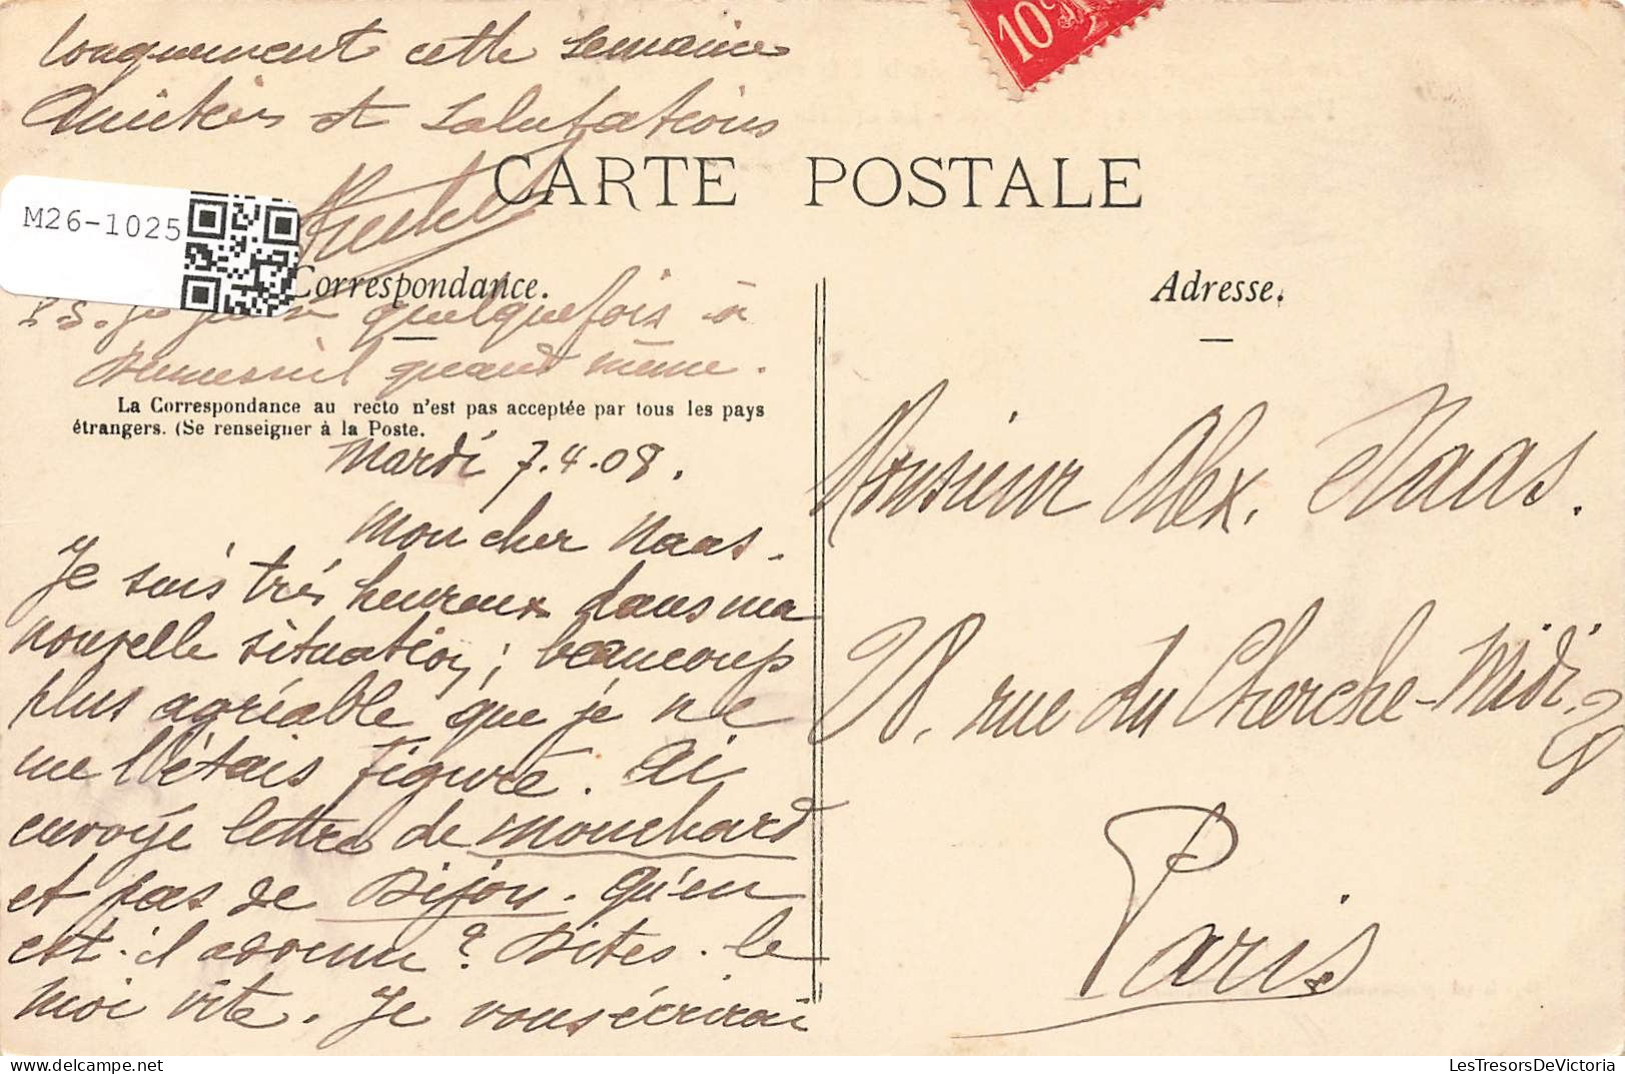 longuement cette semaine
Amitiés et salutations
10c
CARTE POSTALE
M26-1025
Correspondance.
P.S. Je quelquefois à
Dumesnil quand même.
La Correspondance au recto n'est pas acceptée par tous les pays
étrangers. (Se renseigner à la Poste.
Mardi 7.4.08.
Mon cher Naas.
Je suis très heureux dans ma
nouvelle situation; beaucoup
plus agréable que je ne
me l'étais figuré. Ai
envoyé lettre de Mouchard
et pas de Dijon. Qu'en
est-il advenu? Dites-le
moi vite. Je vous écrirai
Adresse.
Monsieur Alex. Naas.
rue du Cherche-Midi,
Paris
LesTresorsDeVictoria